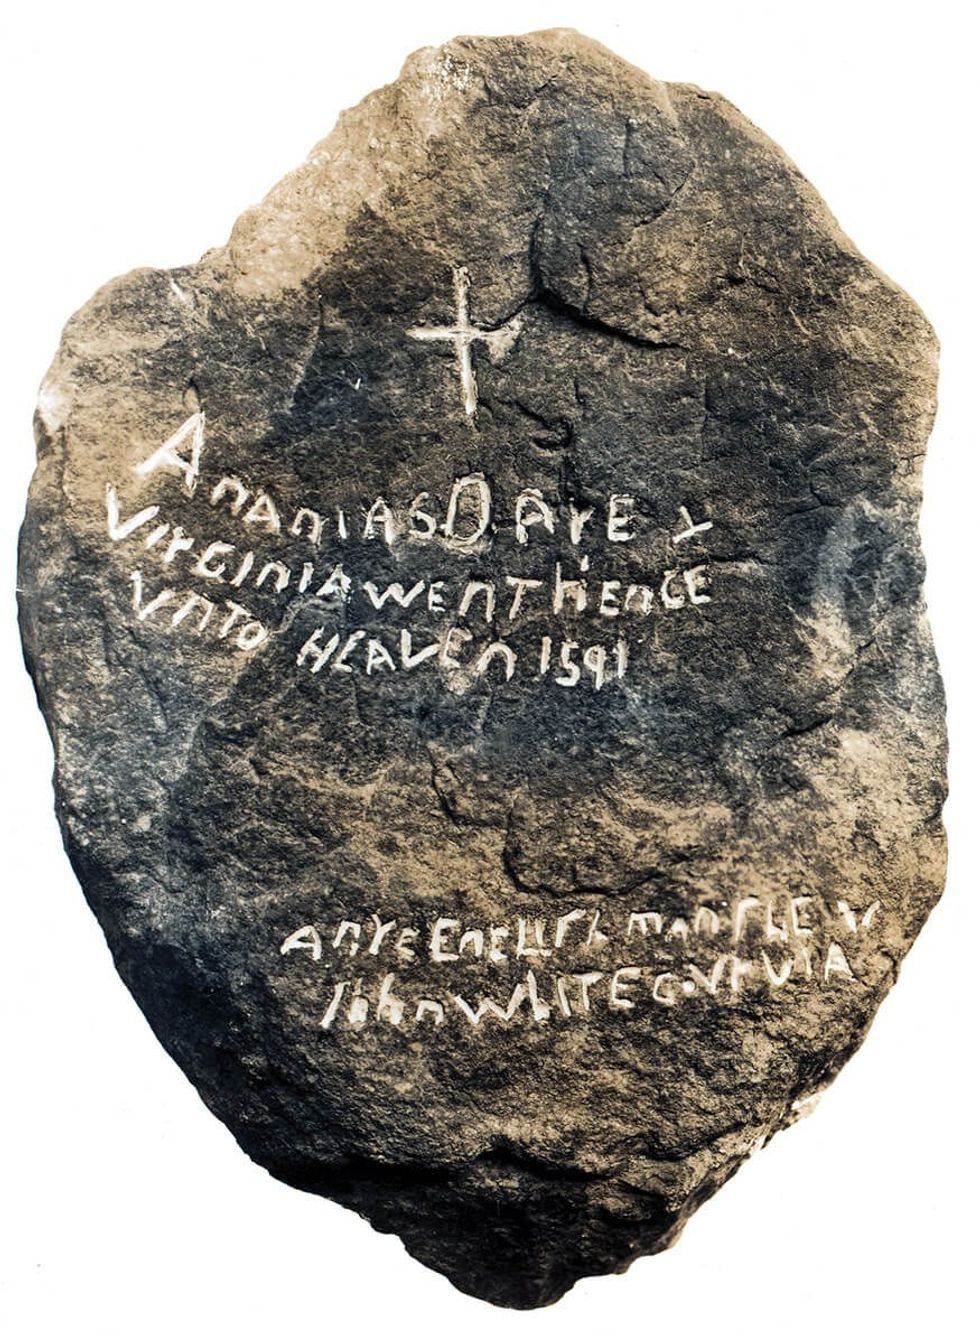 Ananias Dare &
Virginia went hence
Vnto Heaven 1591
Anye Englishman Shew
John White Govr Via